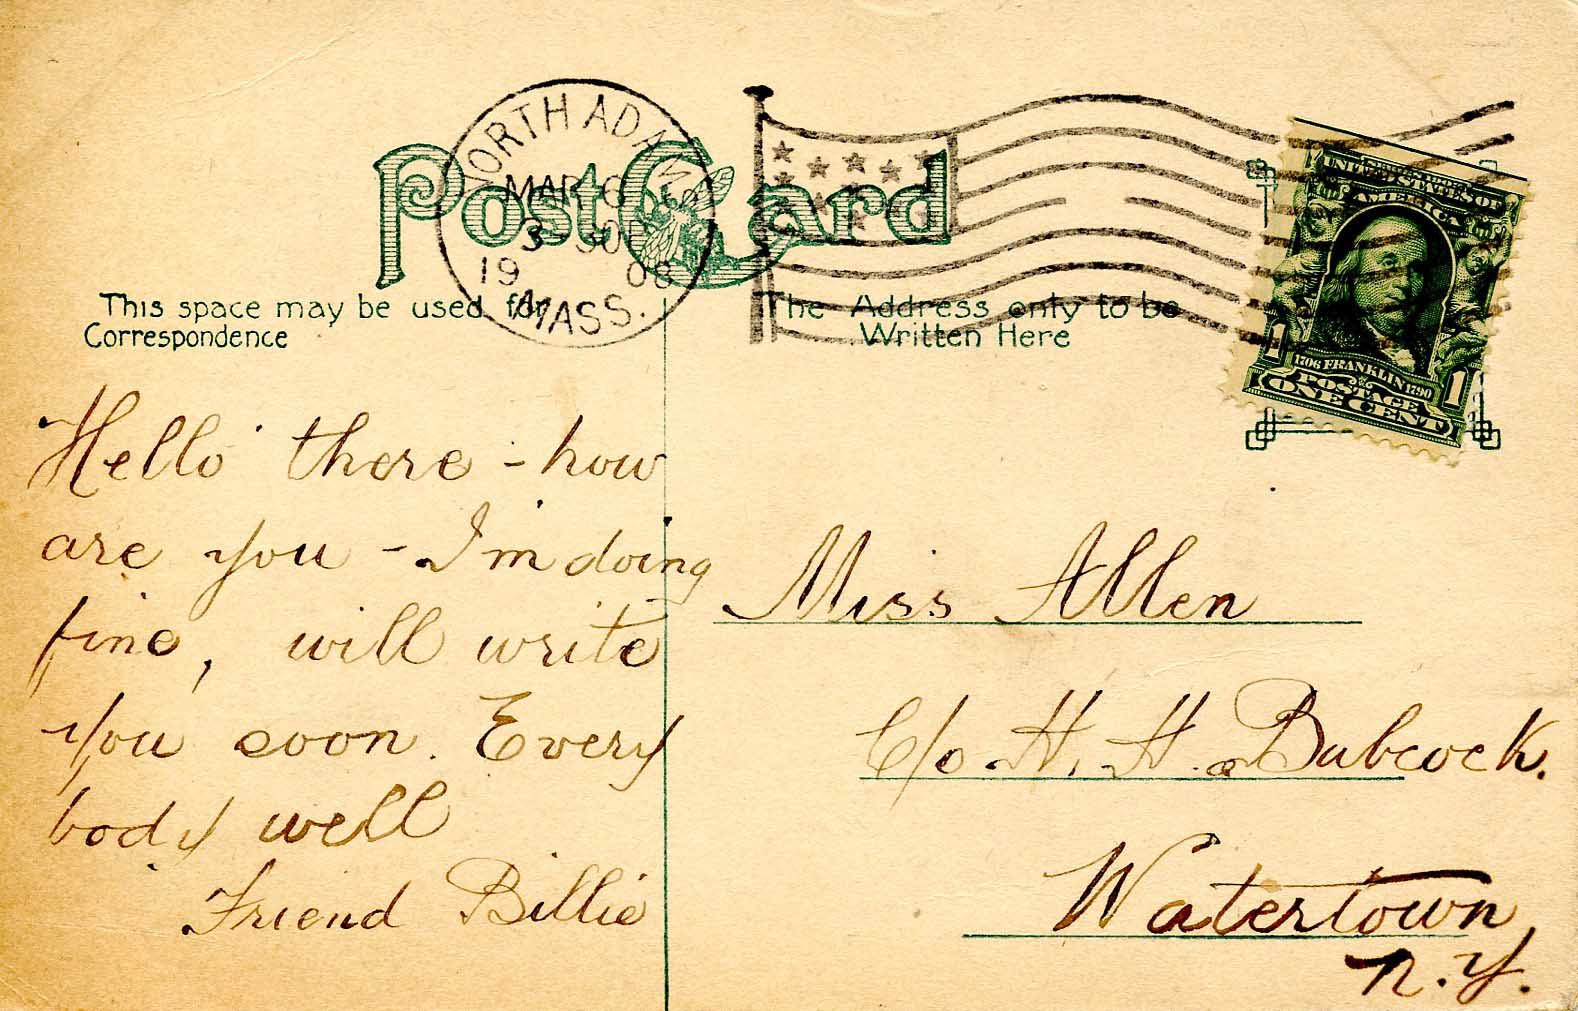 NORTH ADAMS
MAR 6
3-30P
19 08
MASS.
Post Card
This space may be used for
Correspondence
The Address only to be
Written Here
UNITED STATES OF
AMERICA
1706 FRANKLIN 1790
1 POSTAGE 1
ONE CENT
Hello there - how
are you - I'm doing
fine, will write
you soon. Every
body well
Friend Billie
Miss Allen
C/o H. H. Babcock.
Watertown
N.Y.